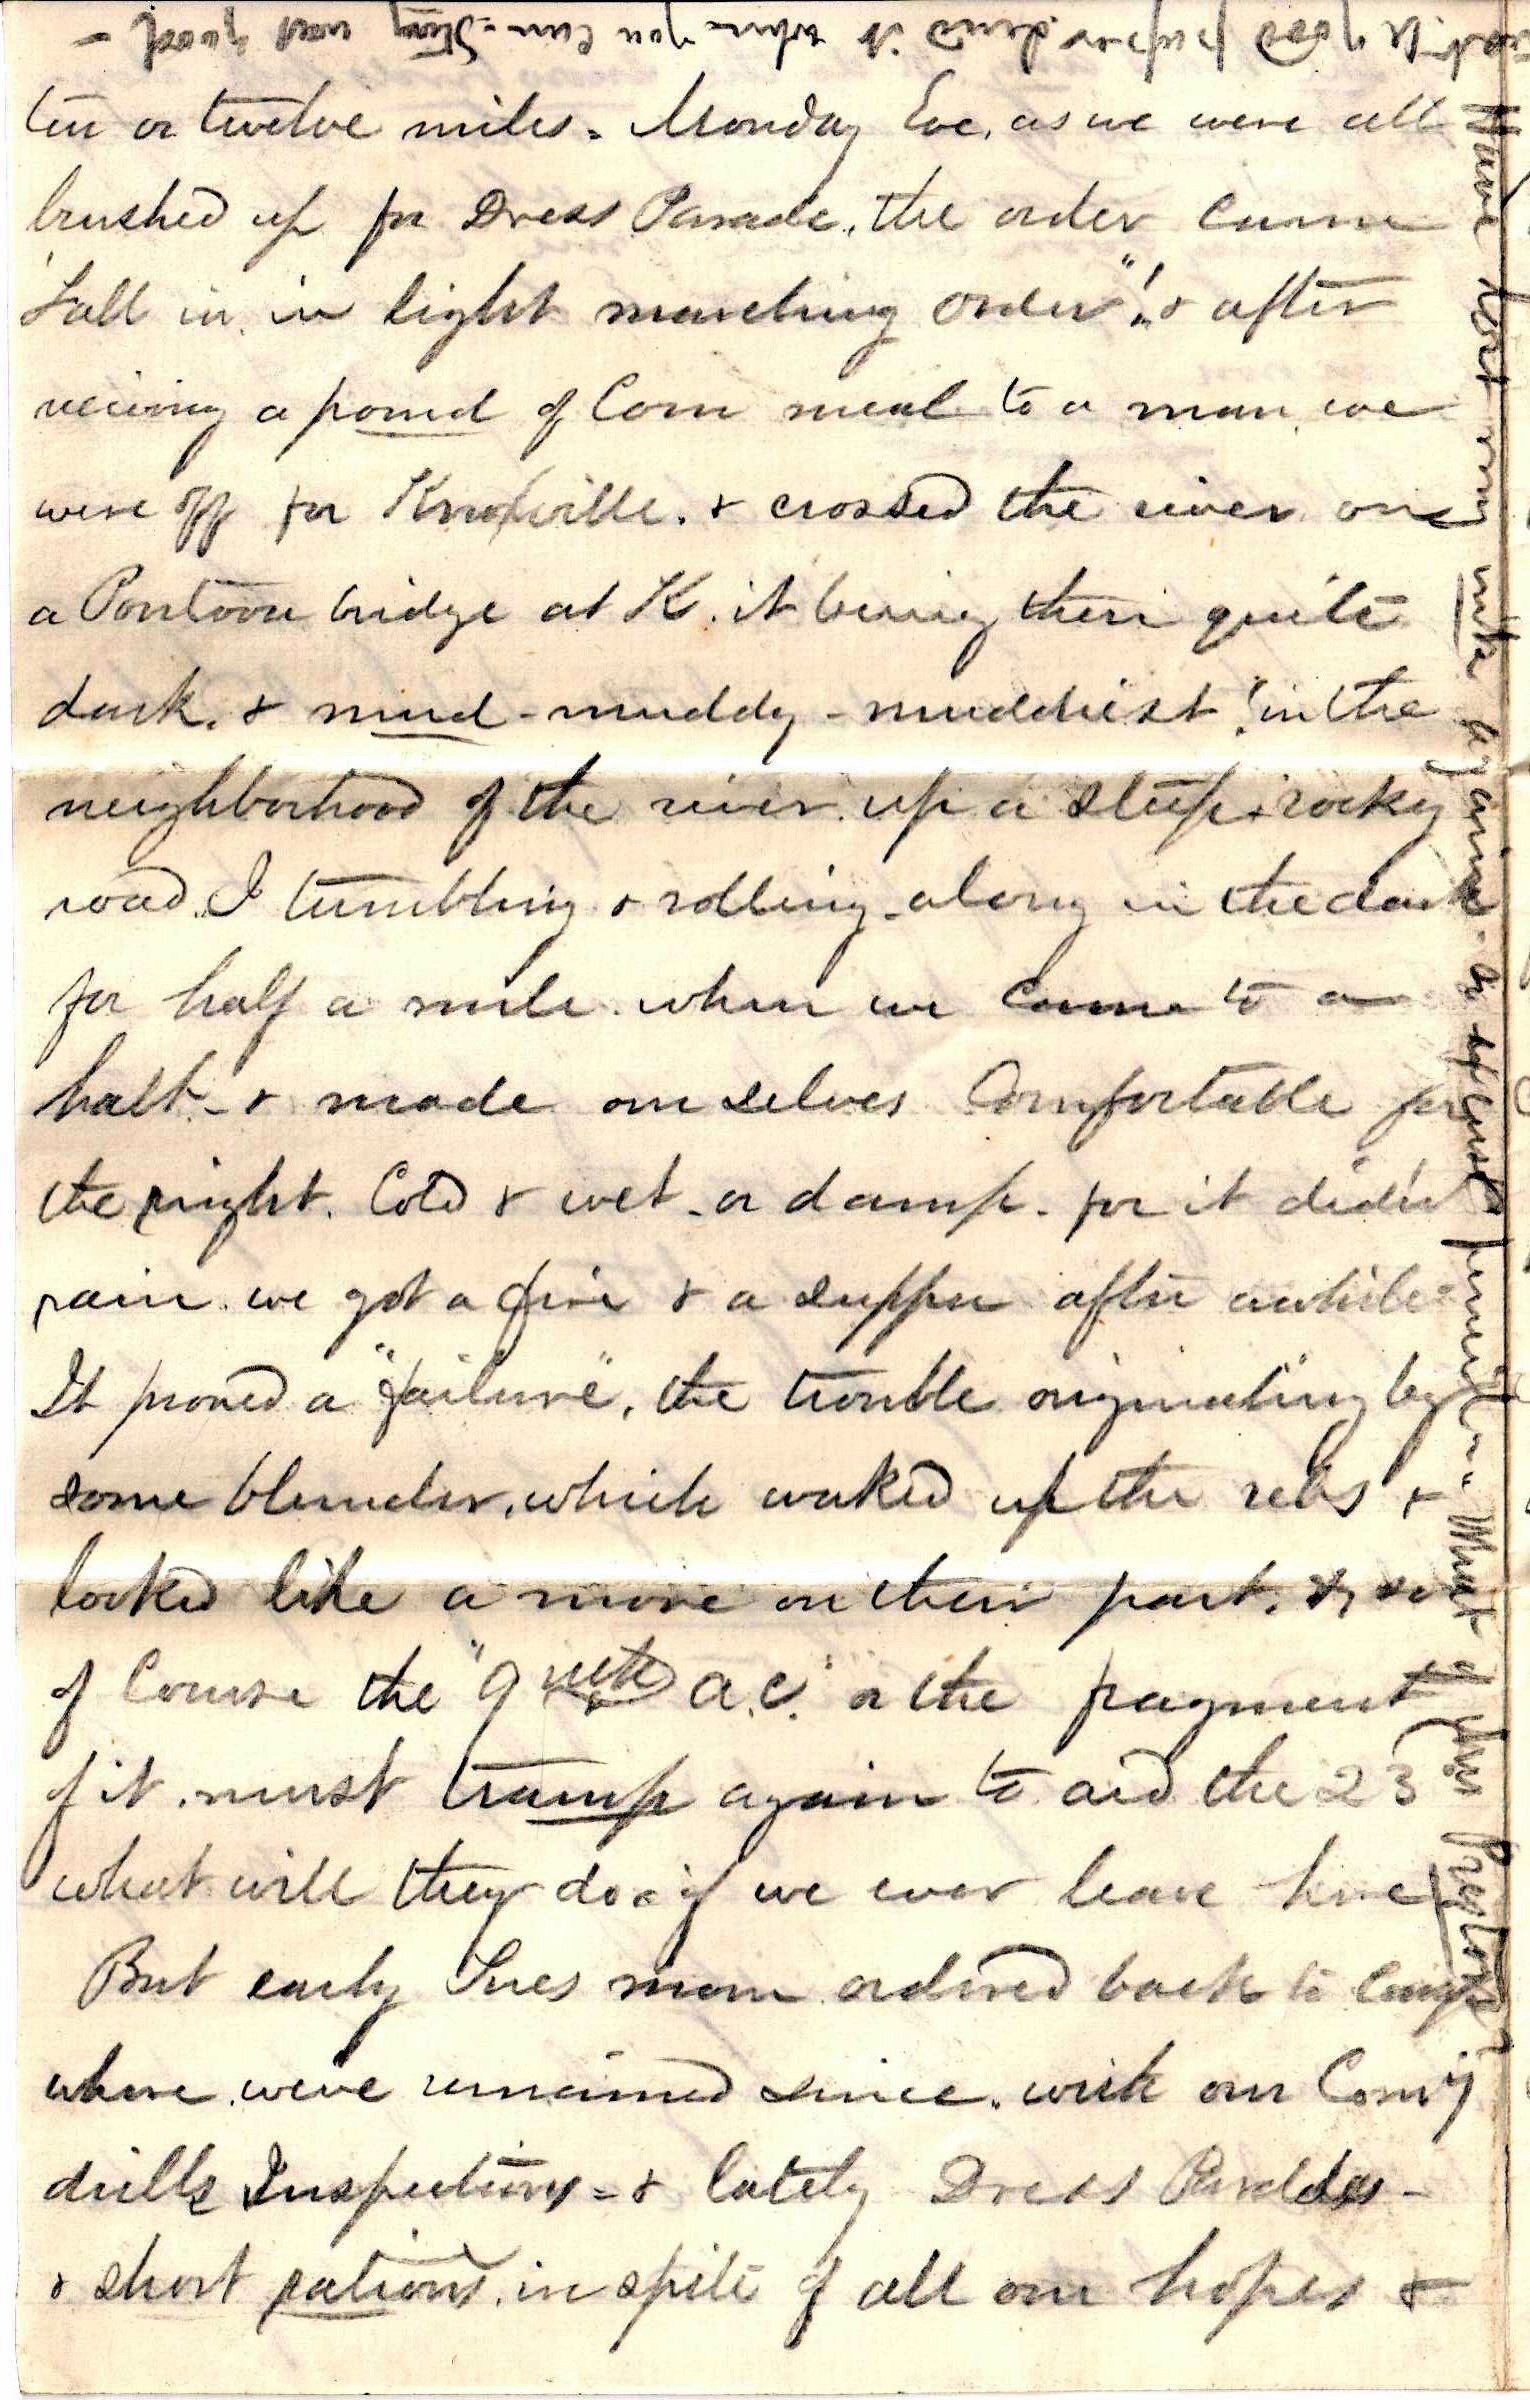 good paper send it when you can. Story was good –
ten or twelve miles. Monday Eve, as we were all
brushed up for Dress Parade, the order came
"Fall in in light marching order"! & after
reciving a pound of Corn meal to a man we
were off for Knoxville. & crossed the river on
a Pontoon bridge at K. it being then quite
dark. & mud - muddy - muddiest! in the
neighborhood of the river. up a steep & rocky
road. I tumbling & rolling along in the dark
for half a mile. when we came to a
halt - & made ourselves Comfortable for
the night. Cold & wet - or damp - for it did'nt
rain. we got a fire & a supper after awhile
It proved a "failure", the trouble originating by
some blunder, which waked up the rebs &
looked like a move on their part. & so
of Course the "9th a.c." or the fragment
of it. must tramp again to aid the 23
what will they do if we ever leave here
But early Tues morn ordered back to Camp
where we've remained since. with our Com'y
drills Inspections = & lately Dress Parades -
& short rations. in spite of all our hopes &
Have lost my again - Must of Preston?